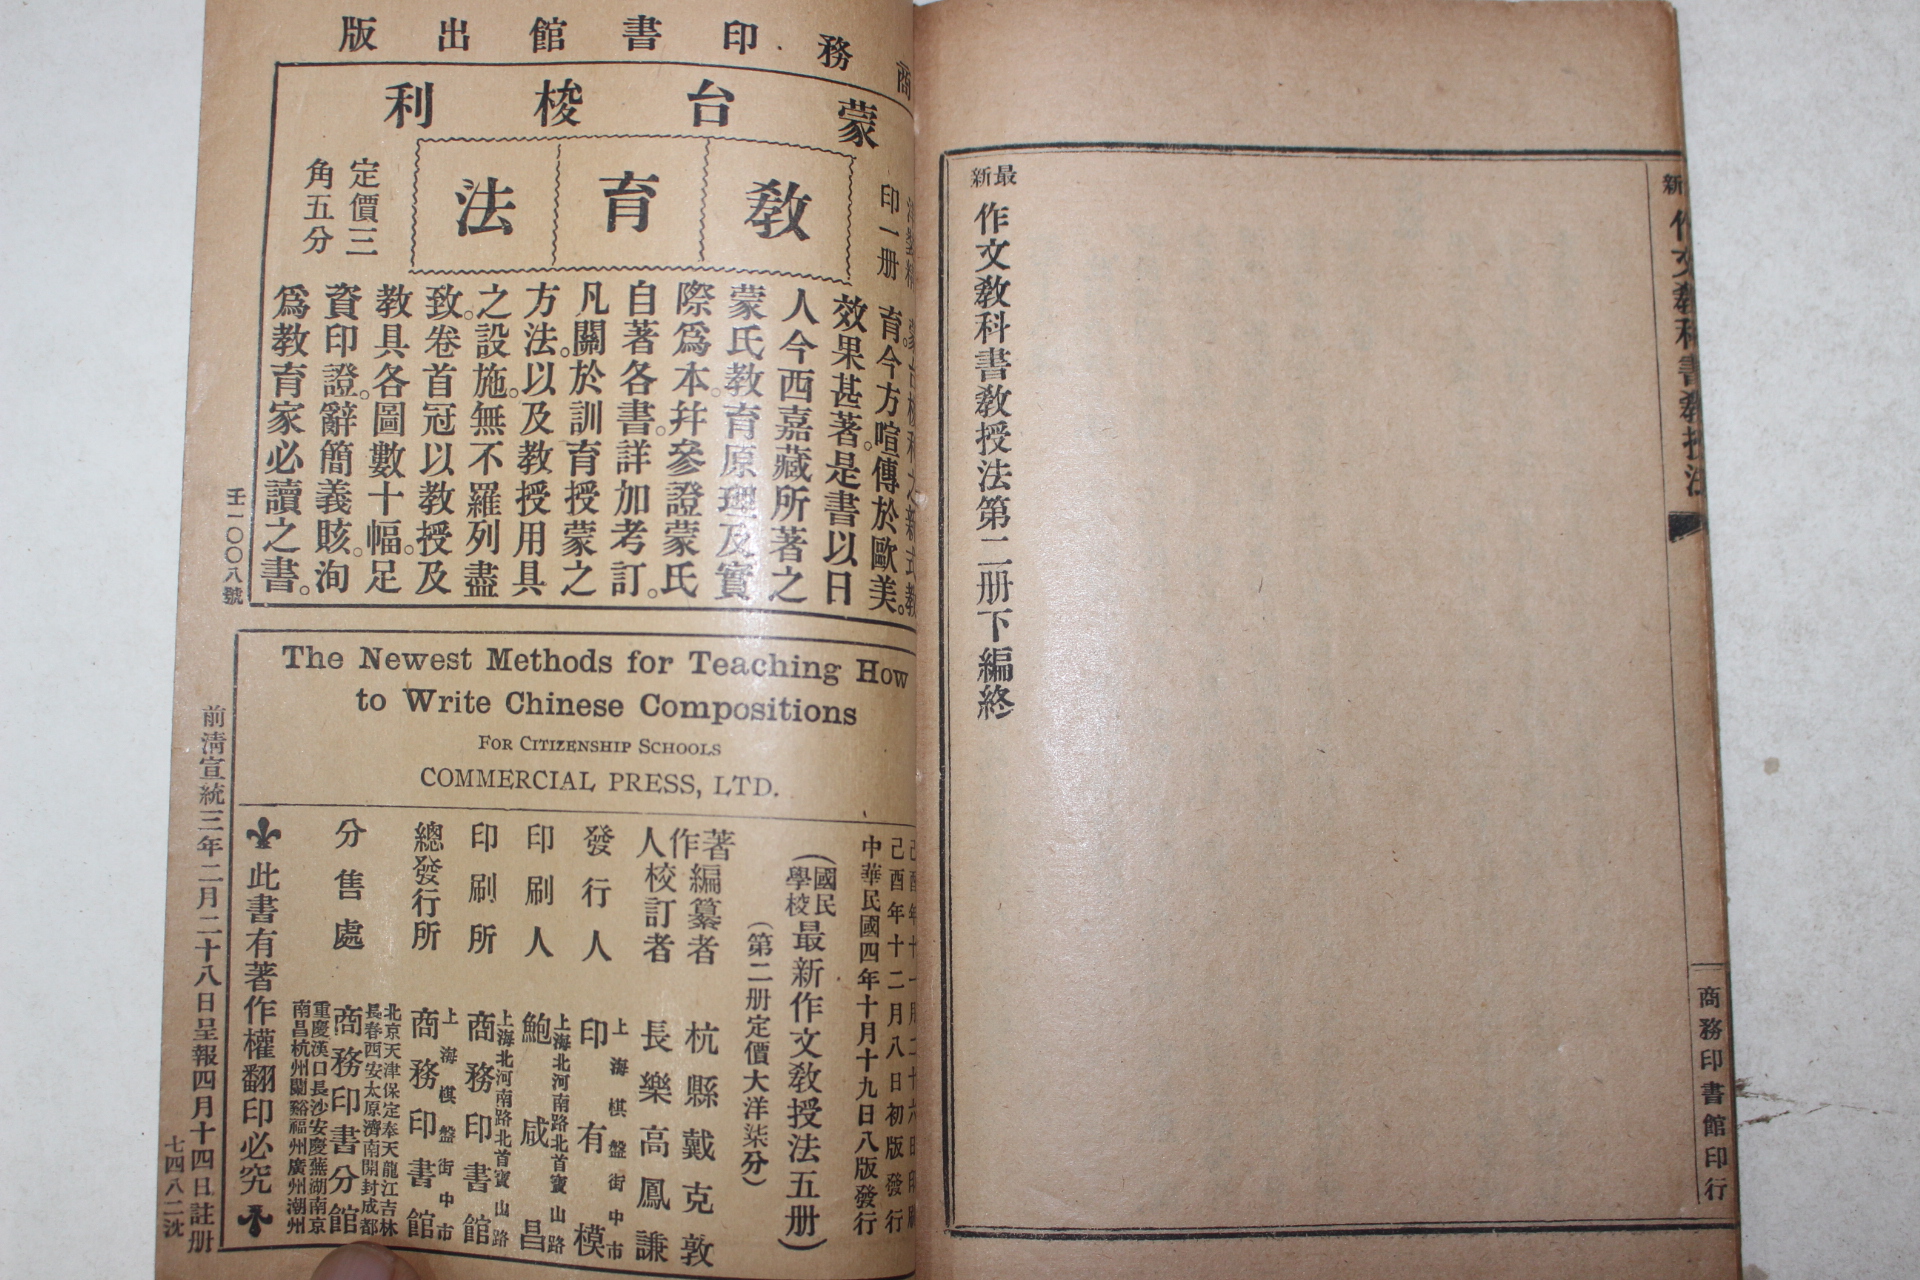 最新 作文教科書教授法第二册下編終
商務印書館印行
商務印書館出版
蒙台梭利
教育法
印一册
定價三
角五分
育。今方喧傳於歐美。
效果甚著。是書以日
人今西嘉藏所著之
蒙氏教育原理及實
際爲本。幷參證蒙氏
自著各書。詳加考訂。
凡關於訓育授蒙之
方法。以及教授用具
之設施。無不羅列盡
致。卷首冠以教授及
教具各圖數十幅。足
資印證。辭簡義賅。洵
爲教育家必讀之書。
壬一〇〇八號
The Newest Methods for Teaching How
to Write Chinese Compositions
FOR CITIZENSHIP SCHOOLS
COMMERCIAL PRESS, LTD.
己酉年十二月八日初版發行
中華民國四年十月十九日八版發行
(國民學校 最新作文教授法五册)
(第二册定價大洋柒分)
著作人
編纂者 杭縣戴克敦
校訂者 長樂高鳳謙
發行人 印有模
上海棋盤街中市
印刷人 鮑咸昌
上海北河南路北首寶山路
印刷所 商務印書館
上海北河南路北首寶山路
總發行所 商務印書館
上海棋盤街中市
分售處 商務印書分館
北京天津保定奉天龍江吉林
長春西安太原濟南開封成都
重慶漢口長沙安慶蕪湖南京
南昌杭州蘭谿福州廣州潮州
此書有著作權翻印必究
前淸宣統三年二月二十八日呈報四月十四日註册
七四八二沈